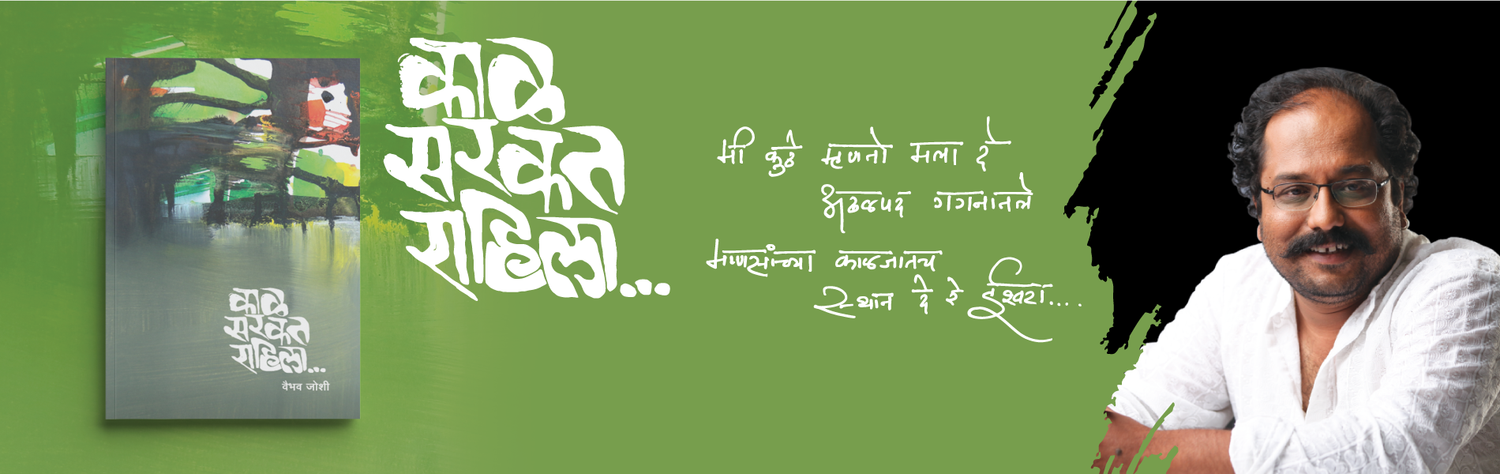 काळ
सरकत
राहिला...
वैभव जोशी
काळ
सरकत
राहिला...
मी कुठे म्हणतो मला दे
अढळपद गगनातले
माणसांच्या काळजातच
स्थान दे हे ईश्वरा....